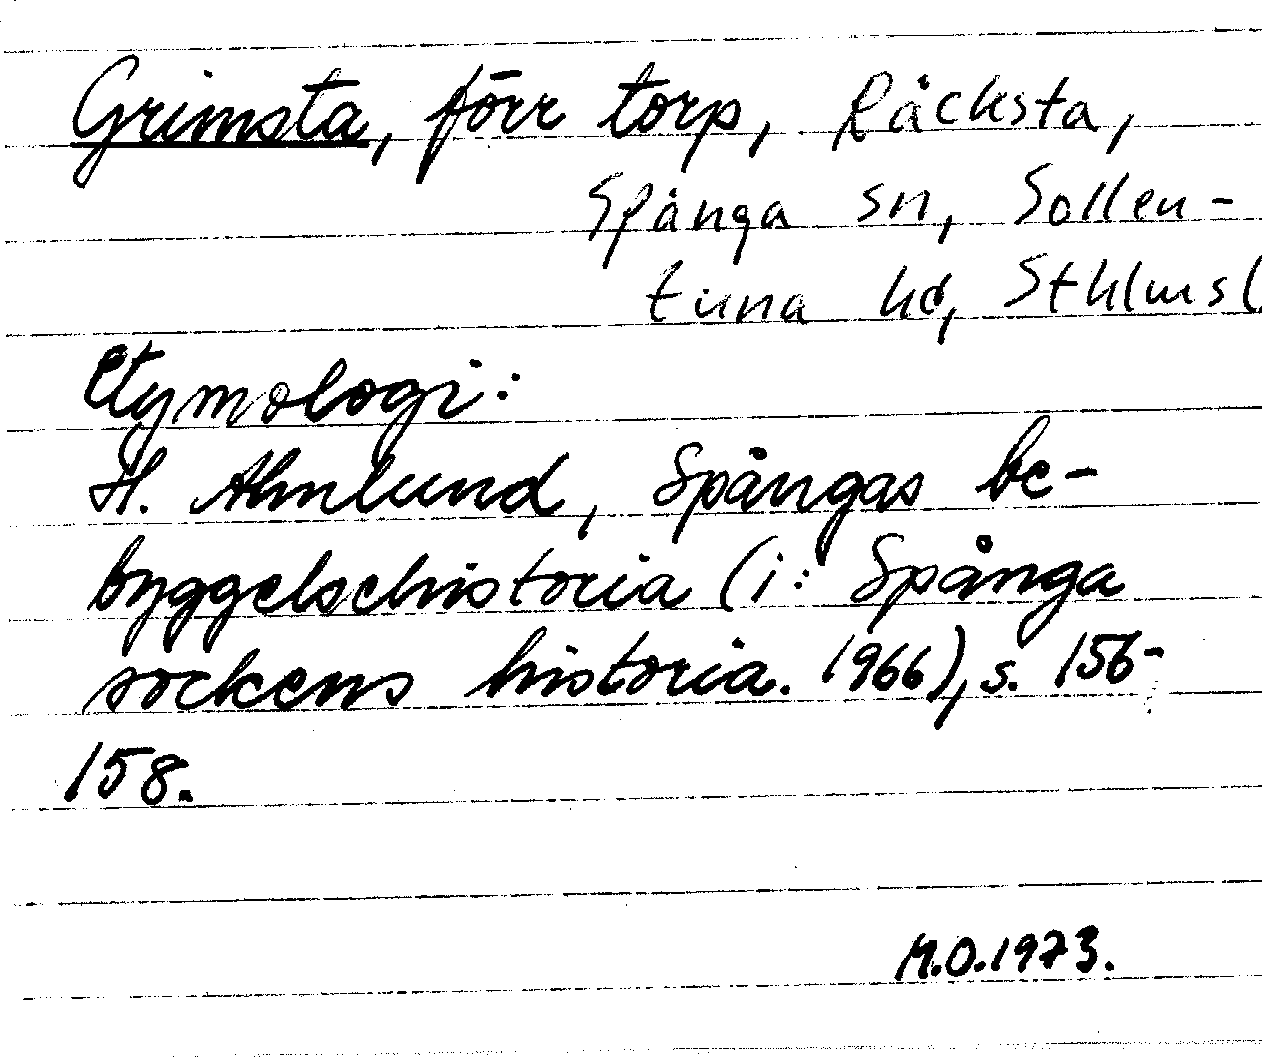 Grimsta, förr torp, Råcksta,
Spånga sn, Sollen-
tuna hd, Sthlmsl
Etymologi:
H. Ahnlund, Spångas be-
byggelsehistoria (i: Spånga
sockens historia. 1966), s. 156-
158.
M.O.1973.